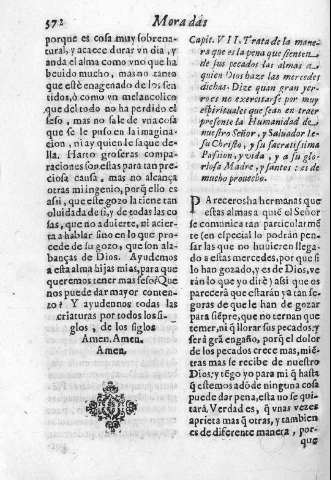 572
Moradas
porque es cosa muy sobrena-
tural, y acaece durar vn dia, y
anda el alma como vno que ha
beuido mucho, mas no tanto
que esté enagenado de los sen
tidos, ò como vn melancolico
que del todo no ha perdido el
seso, mas no sale de vna cosa
que se le puso en la imagina-
cion, ni ay quien le saque de-
lla. Harto groseras compa-
raciones son estas para tan pre-
ciosa causa, mas no alcança
otras mi ingenio, porq̃ ello es
assi, que este gozo la tiene tan
oluidada de si, y de todas las co
sas, que no aduierte, ni acier-
ta a hablar sino en lo que pro
cede de su gozo, que son ala-
banças de Dios. Ayudemos
a esta alma hijas mias, para que
queremos tener mas seso? Que
nos puede dar mayor conten-
to? Y ayudennos todas las
criaturas por todos los si-
glos, de los siglos
Amen. Amen.
Amen.
Capit. VII. Trata de la mane-
ra que es la pena que sienten
de sus pecados las almas a
quien Dios haze las mercedes
dichas. Dize quan gran yer-
ro es no exercitarse por muy
espirituales que sean en traer
presente la Humanidad de
nuestro Señor, y Saluador Ie-
su Christo, y su sacratissima
Passion, y vida, y a su glo-
riosa Madre, y santos: es de
mucho prouecho.
PArecerosha hermanas que
estas almas a quiẽ el Señor
se comunica tan particularmẽ
te (en especial lo podrán pen-
sar las que no huuieren llega-
do a estas mercedes, por que si
lo han gozado, y es de Dios, ve
rán lo que yo diré) assi que es
parecerá que estarán yà tan se-
guras de que le han de gozar
para siẽpre, que no ternan que
temer, ni q̃ llorar sus pecados: y
será grã engaño, porq̃ el dolor
de los pecados crece mas, miẽ-
tras mas se recibe de nuestro
Dios: y tẽgo yo para mi q̃ hasta
q̃ estemos adõde ninguna cosa
puede dar pena, esta no se qui-
tará. Verdad es, q̃ vnas vezes
aprieta mas q̃ otras, y tambien
es de diferente manera, por-
que